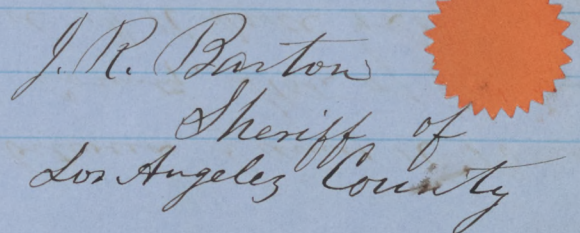 J. R. Barton
Sheriff of
Los Angeles County